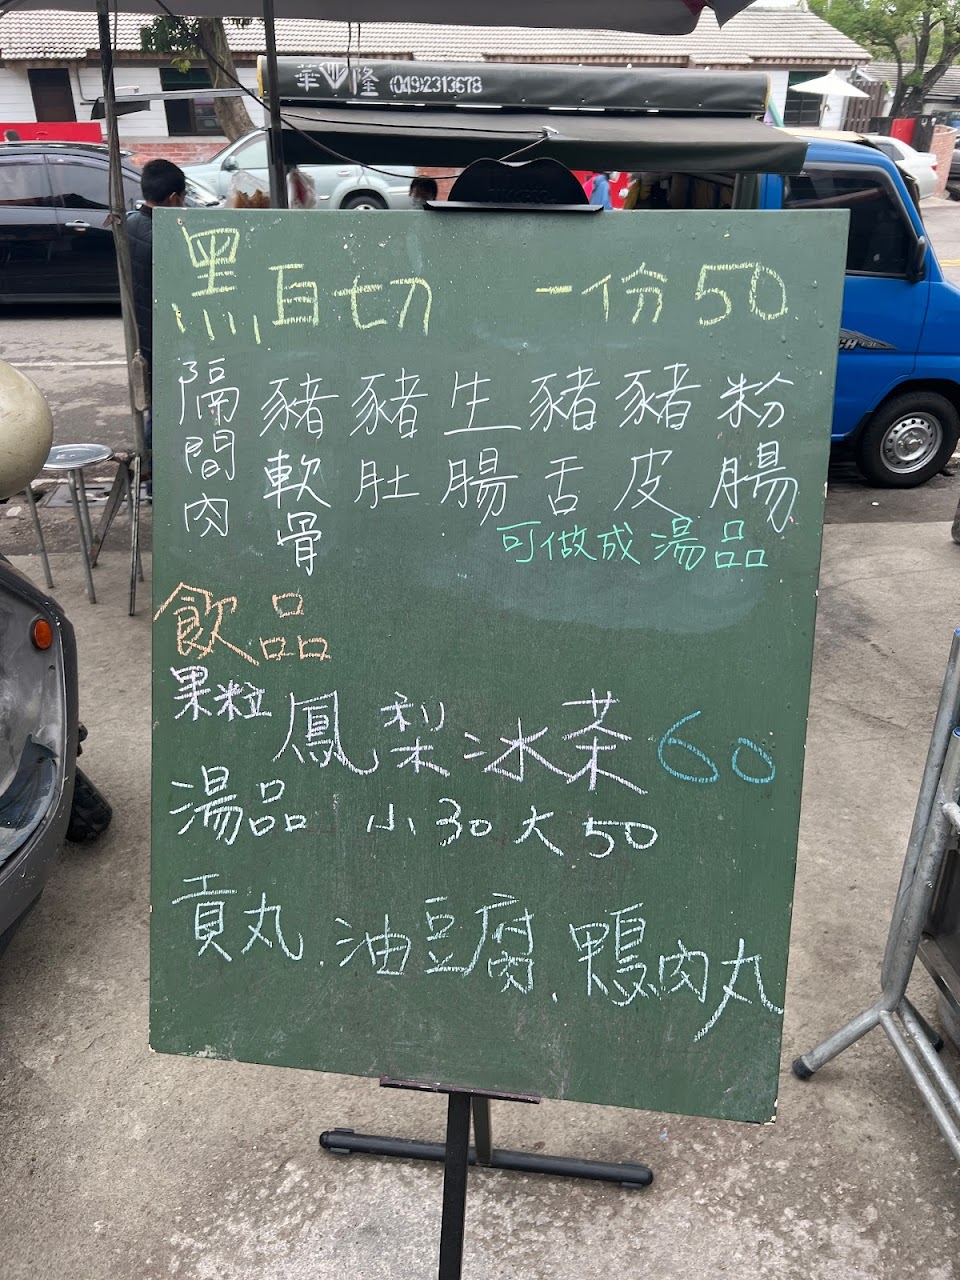 華隆 (049)2313678
黑白切 一份50
隔間肉 豬軟骨 豬肚 生腸 豬舌 豬皮 粉腸
可做成湯品
飲品
果粒鳳梨冰茶60
湯品 小30大50
貢丸.油豆腐.鴨肉丸